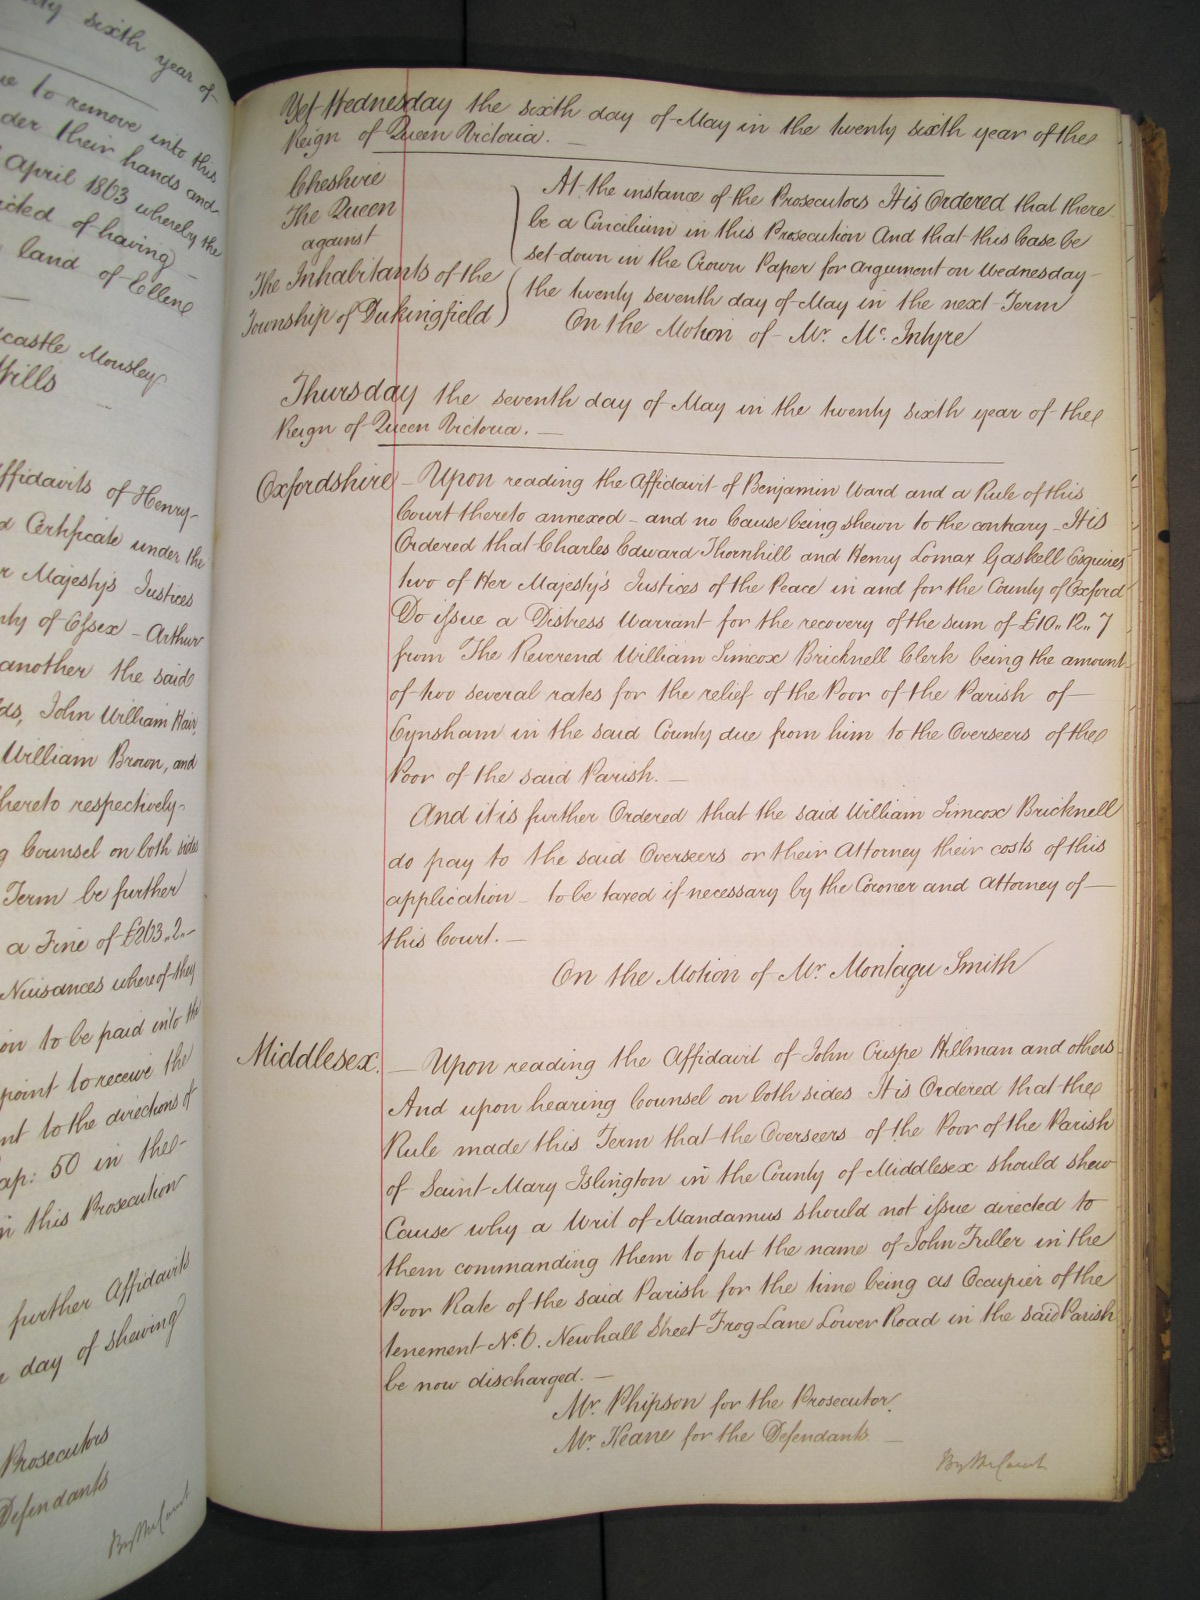 sixth year of
to remove into this
der their hands and
April 1863 whereby the
icted of having
land of Ellene
castle Mousley
Wills
ffidavits of Henry
d Certificate under the
r Majesty's Justices
nty of Essex - Arthur
another the said
ds, John William Hair,
William Brown, and
hereto respectively
g Counsel on both sides
Term be further
a Fine of £263..2..-
Nuisances whereof they
on to be paid into the
point to receive the
nt to the directions of
ap: 50 in the
n this Prosecution
further Affidavits
day of shewing
Prosecutors
Defendants
By the Court
Yet Wednesday the sixth day of May in the twenty sixth year of the
Reign of Queen Victoria. —
Cheshire
The Queen
against
The Inhabitants of the
Township of Dukingfield
At the instance of the Prosecutors It is Ordered that there
be a Concilium in this Prosecution And that this Case be
set down in the Crown Paper for argument on Wednesday
the twenty seventh day of May in the next Term
On the Motion of Mr. Mc. Intyre
Thursday the seventh day of May in the twenty sixth year of the
Reign of Queen Victoria. —
Oxfordshire — Upon reading the Affidavit of Benjamin Ward and a Rule of this
Court thereto annexed – and no Cause being shewn to the contrary – It is
Ordered that Charles Edward Thornhill and Henry Lomax Gaskell Esquires
two of Her Majesty's Justices of the Peace in and for the County of Oxford
Do issue a Distress Warrant for the recovery of the sum of £10.. 12.. 7
from The Reverend William Simcox Bricknell Clerk being the amount
of two several rates for the relief of the Poor of the Parish of —
Eynsham in the said County due from him to the Overseers of the
Poor of the said Parish. —
And it is further Ordered that the said William Simcox Bricknell
do pay to the said Overseers or their Attorney their costs of this
application – to be taxed if necessary by the Coroner and Attorney of —
this Court. —
On the Motion of Mr. Montagu Smith
Middlesex. — Upon reading the Affidavit of John Crispe Hillman and others
And upon hearing Counsel on both sides It is Ordered that the
Rule made this Term that the Overseers of the Poor of the Parish
of Saint Mary Islington in the County of Middlesex should shew
Cause why a Writ of Mandamus should not issue directed to
them commanding them to put the name of John Fuller in the
Poor Rate of the said Parish for the time being as Occupier of the
tenement No. 6. Newhall Street Frog Lane Lower Road in the said Parish
be now discharged. —
Mr. Phipson for the Prosecutor.
Mr. Keane for the Defendants. —
By the Court